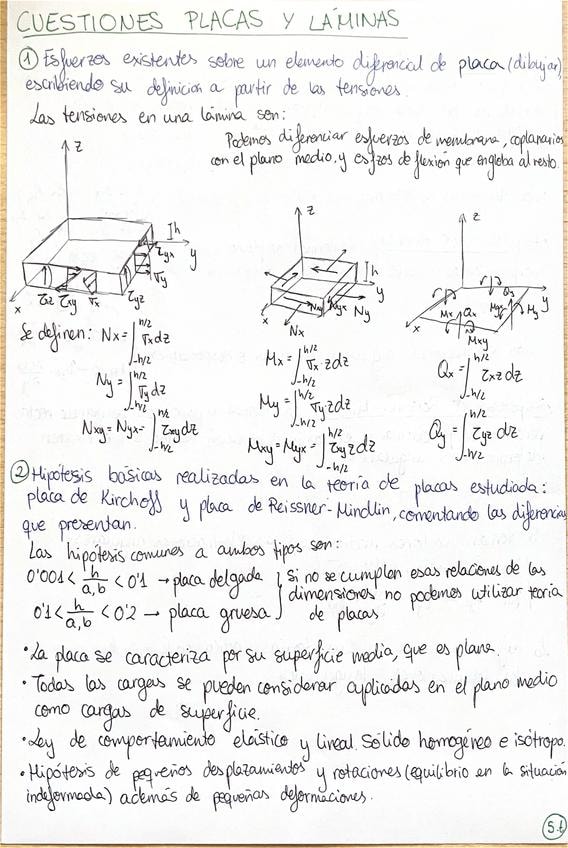 CUESTIONES PLACAS Y LÁMINAS
① Esfuerzos existentes sobre un elemento diferencial de placa (dibujar),
escribiendo su definición a partir de las tensiones.
Las tensiones en una lámina son:
Podemos diferenciar esfuerzos de membrana, coplanarios
con el plano medio, y esfzos de flexión que engloba al resto.
z
h
τyx
y
σy
x
τz τxy σx τyz
z
h
Nxy Nyx Ny
x
Nx
z
Qy
y
Mx Qx Myx My
x
Mxy
Se definen: Nx = ∫_{-h/2}^{h/2} σx dz
Ny = ∫_{-h/2}^{h/2} σy dz
Nxy = Nyx = ∫_{-h/2}^{h/2} τxy dz
Mx = ∫_{-h/2}^{h/2} σx · z dz
My = ∫_{-h/2}^{h/2} σy z dz
Mxy = Myx = ∫_{-h/2}^{h/2} τxy z dz
Qx = ∫_{-h/2}^{h/2} τxz dz
Qy = ∫_{-h/2}^{h/2} τyz dz
② Hipótesis básicas realizadas en la teoría de placas estudiada:
placa de Kirchoff y placa de Reissner-Mindlin, comentando las diferencias
que presentan.
Las hipótesis comunes a ambos tipos son:
0'001 < h/a,b < 0'1 → placa delgada
0'1 < h/a,b < 0'2 → placa gruesa
Si no se cumplen esas relaciones de las
dimensiones no podemos utilizar teoría
de placas
· La placa se caracteriza por su superficie media, que es plana.
· Todas las cargas se pueden considerar aplicadas en el plano medio
como cargas de superficie.
· Ley de comportamiento elástico y lineal. Sólido homogéneo e isótropo.
· Hipótesis de pequeños desplazamientos y rotaciones (equilibrio en la situación
indeformada) además de pequeñas deformaciones.